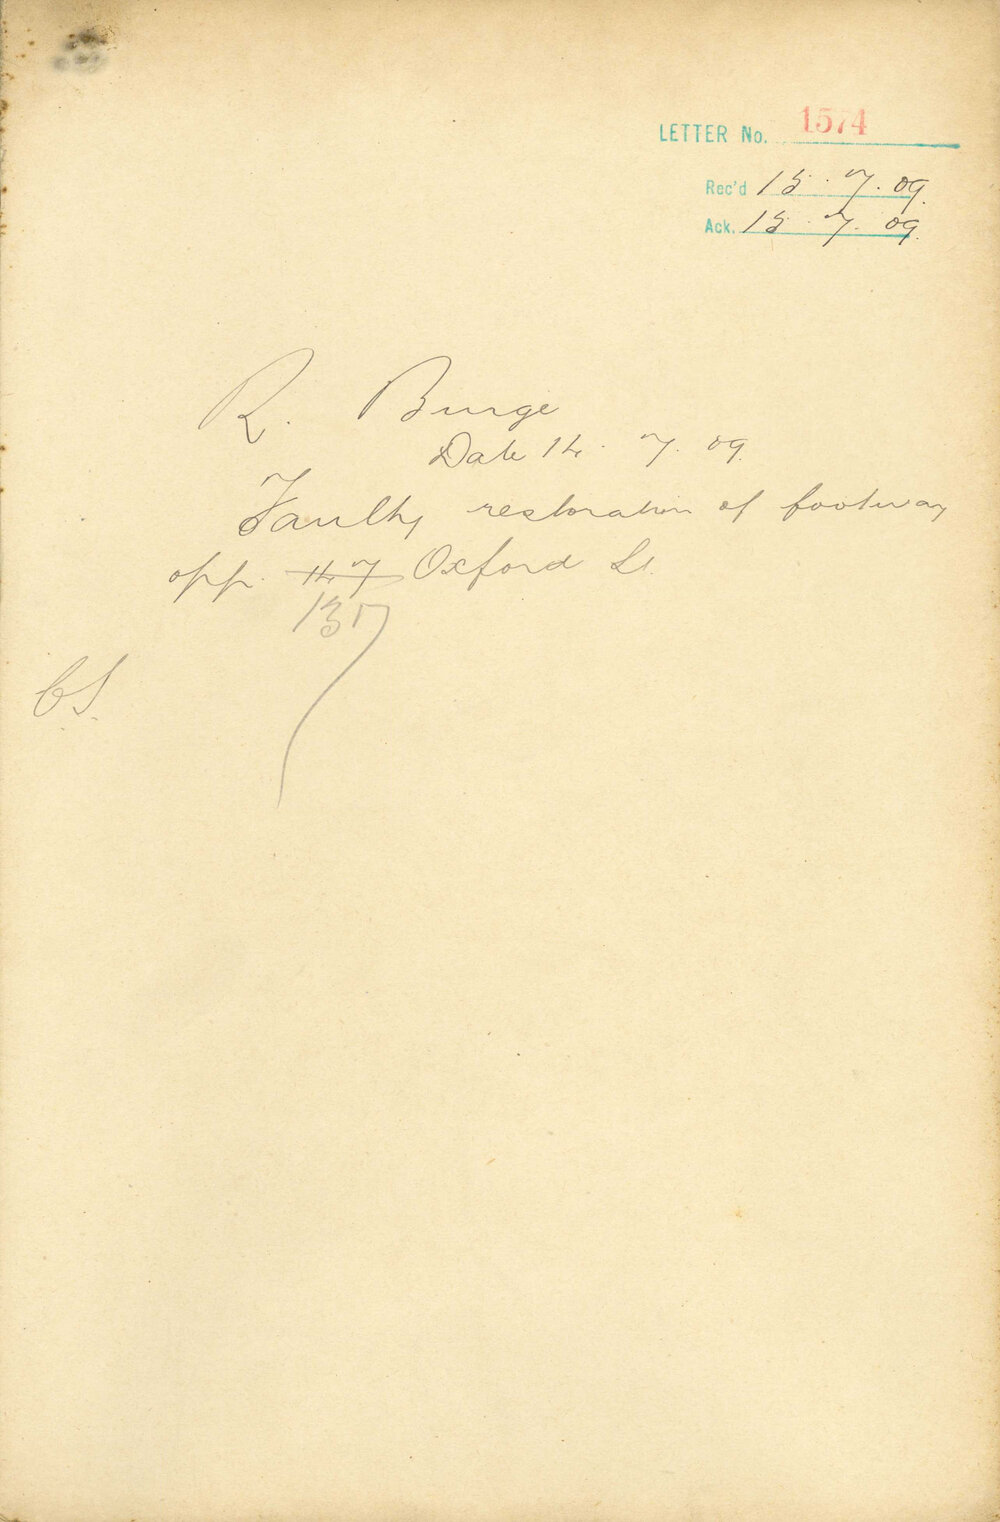 LETTER No. 1574
Rec'd 15.7.09.
Ack. 15.7.09.
R. Burge
Date 14.7.09.
Faulty restoration of footway
opp. 147 Oxford St.
137
C.S.